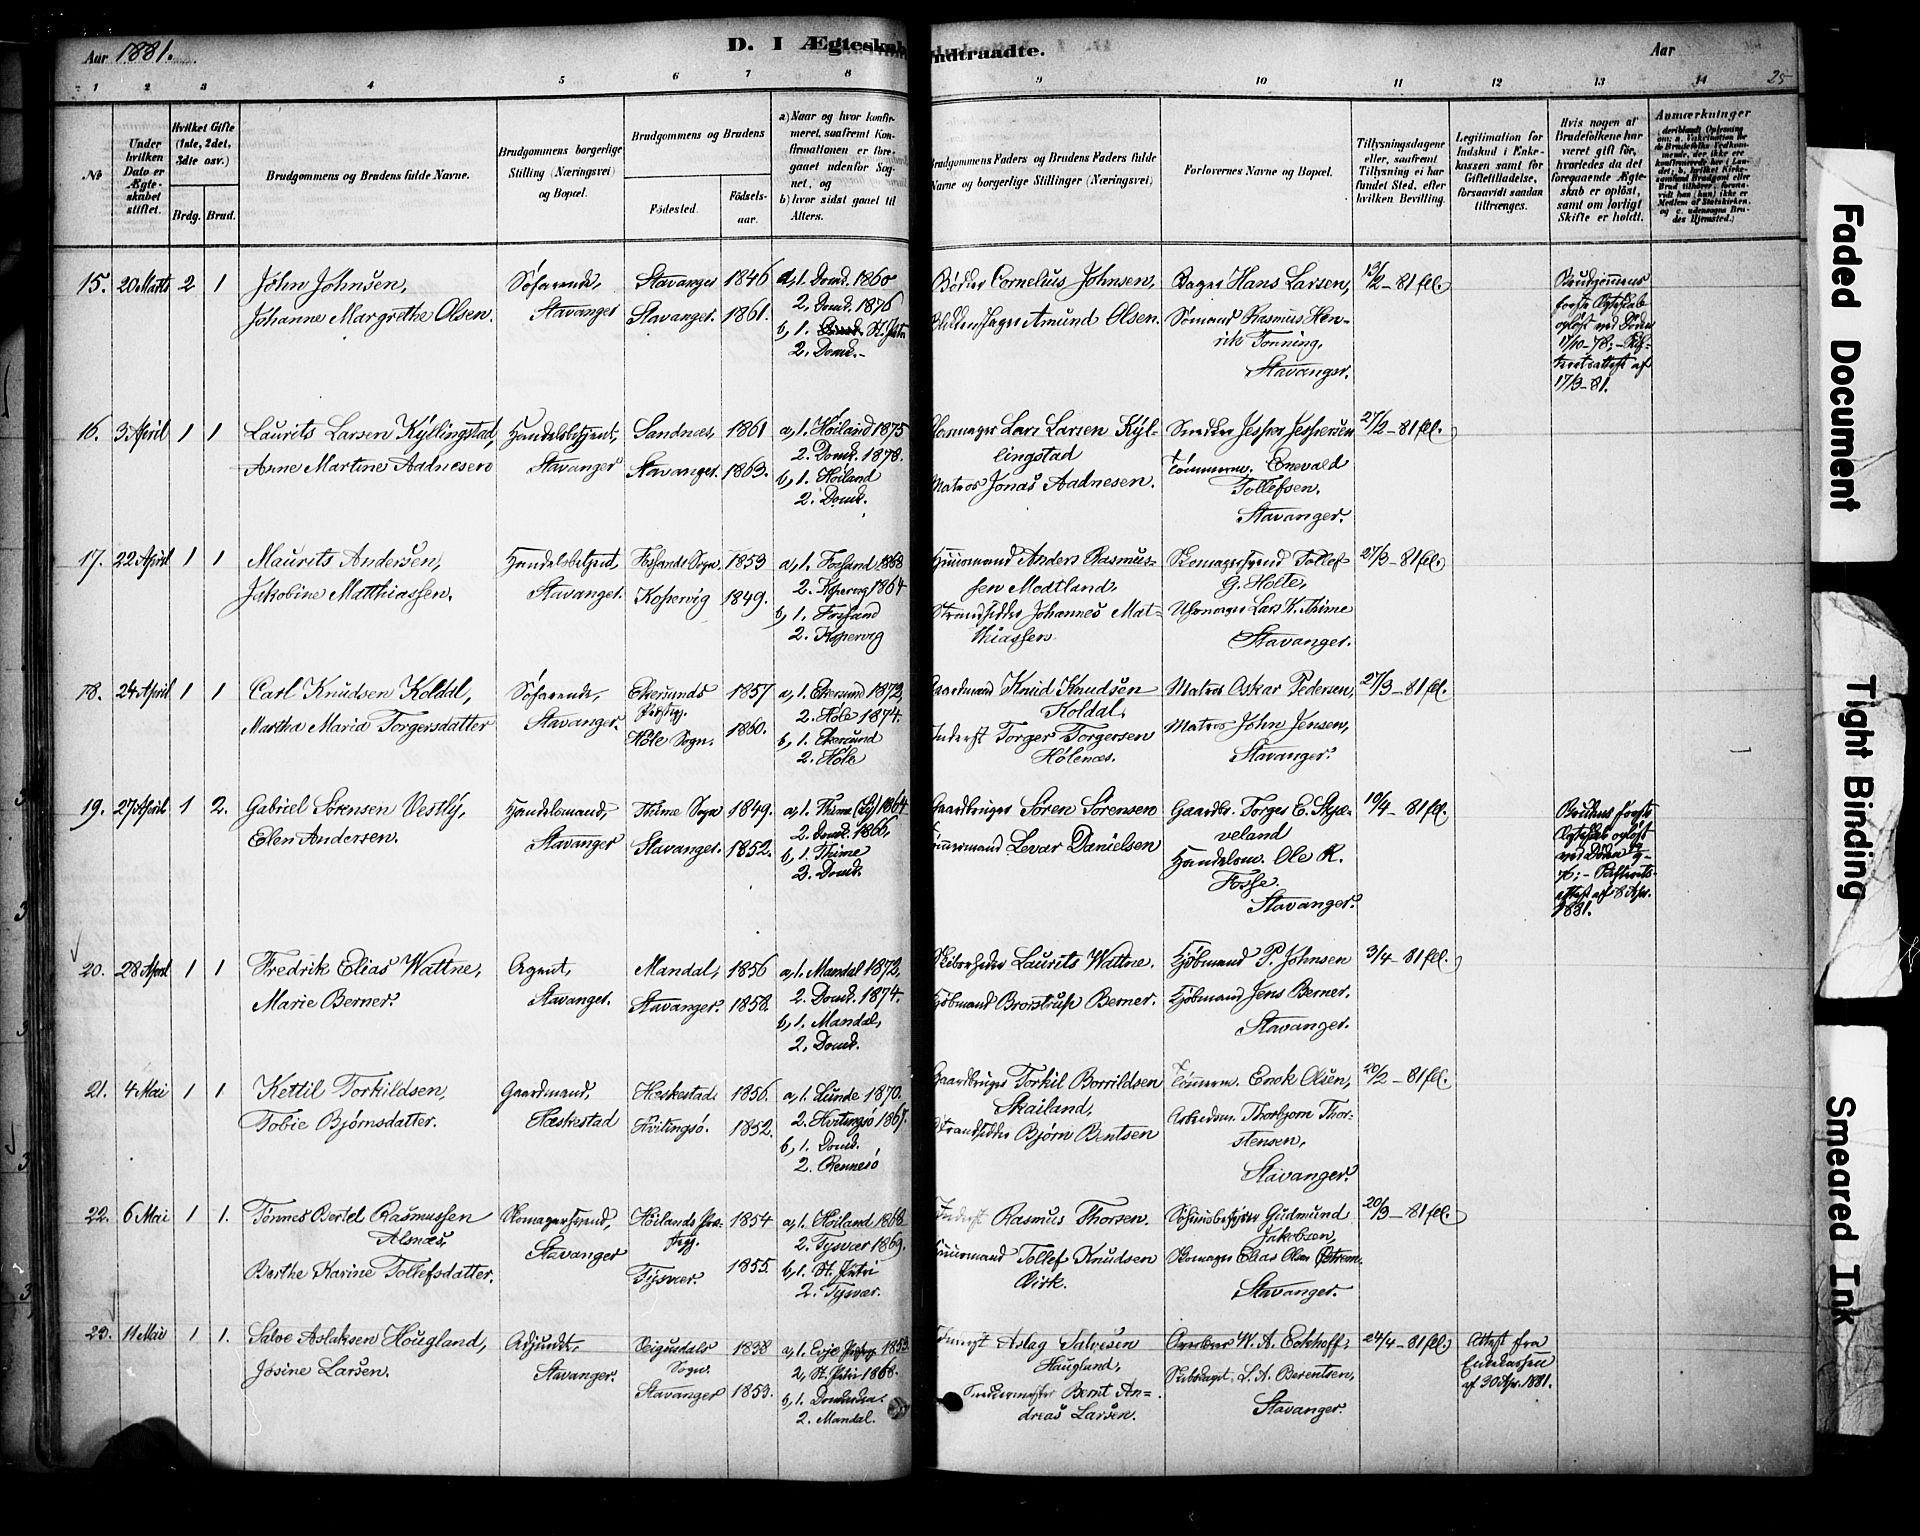 Aar 1881.
D. I Ægteskab Indtraadte.
Aar
25
1 2 3 4 5 6 7 8 9 10 11 12 13 14
No
Under hvilken Dato er Ægteskabet stiftet.
Hvilket Gifte (1ste, 2det, 3die osv.)
Brdg. Brud.
Brudgommens og Brudens fulde Navne.
Brudgommens borgerlige Stilling (Næringsvei) og Bopæl.
Brudgommens og Brudens
Fødested.
Fødselsaar.
a) Naar og hvor konfirmeret, saafremt Konfirmationen er foregaaet udenfor Sognet, og
b) hvor sidst gaaet til Alters.
Brudgommens Faders og Brudens Faders fulde Navne og borgerlige Stillinger (Næringsvei)
Forlovernes Navne og Bopæl.
Tillysningsdagene eller, saafremt Tillysning ei har fundet Sted, efter hvilken Bevilling.
Legitimation for Indskud i Enkekassen samt for Giftetilladelse, forsaavidt saadan tiltrænges.
Hvis nogen af Brudefolkene har været gift før, hvorledes da det foregaaende Ægteskab er opløst, samt om lovligt Skifte er holdt.
Anmærkninger
15. 20 Marts 2 1 John Johnsen, Søfarende, Stavanger 1846 a, 1. Domk. 1860
Johanne Margrethe Olsen. Stavanger Stavanger. 1861. 2. Domk. 1876
b, 1. St. Petri
2. Domk.
Bødker Cornelius Johnsen, Bager Hans Larsen, 13/2 - 81 fl.
Amund Olsen. Sømand Rasmus Henrik Tonning, Stavanger.
Brudgommens første Ægteskab opløst ved Døden 17/10-78; - Skifteretsattest af 17/3-81.
16. 3 April 1 1 Laurits Larsen Kyllingstad, Handelsbetjent, Sandnæs, 1861 a, 1. Høiland 1875
Anne Martine Aadnesen Stavanger Stavanger. 1863. 2. Domk. 1878.
b, 1. Høiland
2. Domk.
Lars Larsen Kyllingstad Snedker Jesper Jespersen 27/2 - 81 fl.
Matros Jonas Aadnesen. Tømmerm. Enevald Tollefsen, Stavanger.
17. 22 April 1 1 Maurits Andersen, Handelsbetjent, Fossands Sogn 1853 a, 1. Fossand 1868
Jakobine Matthiassen. Stavanger. Kopervig 1849. 2. Kopervig 1864
b, 1. Fossand
2. Kopervig
Huusmand Anders Rasmussen Modtland, Skomagersvend Tollef G. Holte, 27/3 - 81 fl.
Strandsidder Johannes Matthiassen Lars K. Thime Stavanger.
18. 24 April 1 1 Carl Knudsen Koldal, Søfarende, Ekersunds Præstegj. 1857 a, 1. Ekersund 1872,
Martha Maria Torgersdatter Stavanger. Høle Sogn. 1860. 2. Høle 1874.
b, 1. Ekersund
2. Høle
Gaardmand Knud Knudsen Koldal, Matros Oskar Pedersen, 27/3 - 81 fl.
Inderst Torger Torgersen Hølenæs. Matros John Jensen, Stavanger.
19. 27 April 1 2. Gabriel Sørensen Vestly, Handelsmand, Thime Sogn 1849. a, 1. Thime 1864
Elen Andersen. Stavanger Stavanger. 1852. 2. Domk. 1866,
b, 1. Thime
2. Domk.
Gaardbruger Søren Sørensen Gaardbr. Torger E. Skjæveland 10/4 - 81 fl.
Tømmermand Levar Danielsen Handelsm. Ole R. Fosse. Stavanger.
Brudens første Ægteskab opløst ved Døden 76; - Skifteretsattest af 8 Apr. 1881.
20. 28 April 1 1 Fredrik Elias Wattne, Agent, Mandal, 1856 a, 1. Mandal 1872,
Marie Berner. Stavanger. Stavanger. 1858. 2. Domk. 1874.
b, 1. Mandal,
2. Domk.
Skibsrheder Laurits Wattne. Kjøbmand P. Johnsen 3/4 - 81 fl.
Kjøbmand Brorstrup Berner. Kjøbmand Jens Berner. Stavanger.
21. 4 Mai 1 1 Kettil Torkildsen, Gaardmand, Heskestad 1856. a, 1. Lunde 1870.
Tobie Bjørnsdatter. Hæskestad Hvitingsø. 1852. 2. Hvitingsø 1867.
b, 1. Domk.
2. Rennesø
Gaardbruger Torkil Borrildsen Skailand, Tømmerm. Enok Olsen, 20/2 - 81 fl.
Strandsidder Bjørn Bentsen Arbeidsm. Thorbjørn Thorstensen, Stavanger.
22. 6 Mai 1 1. Tønnes Bertel Rasmussen Alsnæs, Skomagersvend, Høilands Præstegj. 1854 a, 1. Høiland 1868
Berthe Karine Tollefsdatter. Stavanger Tysvær. 1855. 2. Tysvær 1869.
b, 1. St. Petri
2. Tysvær.
Inderst Rasmus Thorsen. Gudmund Jakobsen, 20/3 - 81 fl.
Huusmand Tollef Knudsen Virk. Skomager Elias Olsen Østrem. Stavanger.
23. 11 Mai 1 1. Salve Aslaksen Hougland, Adjunkt, Veigusdals Sogn. 1838 a, 1. Evje 1853.
Josine Larsen. Stavanger. Stavanger 1853. 2, St. Petri 1868.
b, 1.
2. Mandal.
Aslag Salvesen Haugland, W. A. Eckhoff, 24/4 - 81 fl.
Snedkermester Bernt Andreas Larsen. L. A. Berentsen, Stavanger.
Attest fra Enkekassen af 30 Apr. 1881.
Faded Document
Tight Binding
Smeared Ink